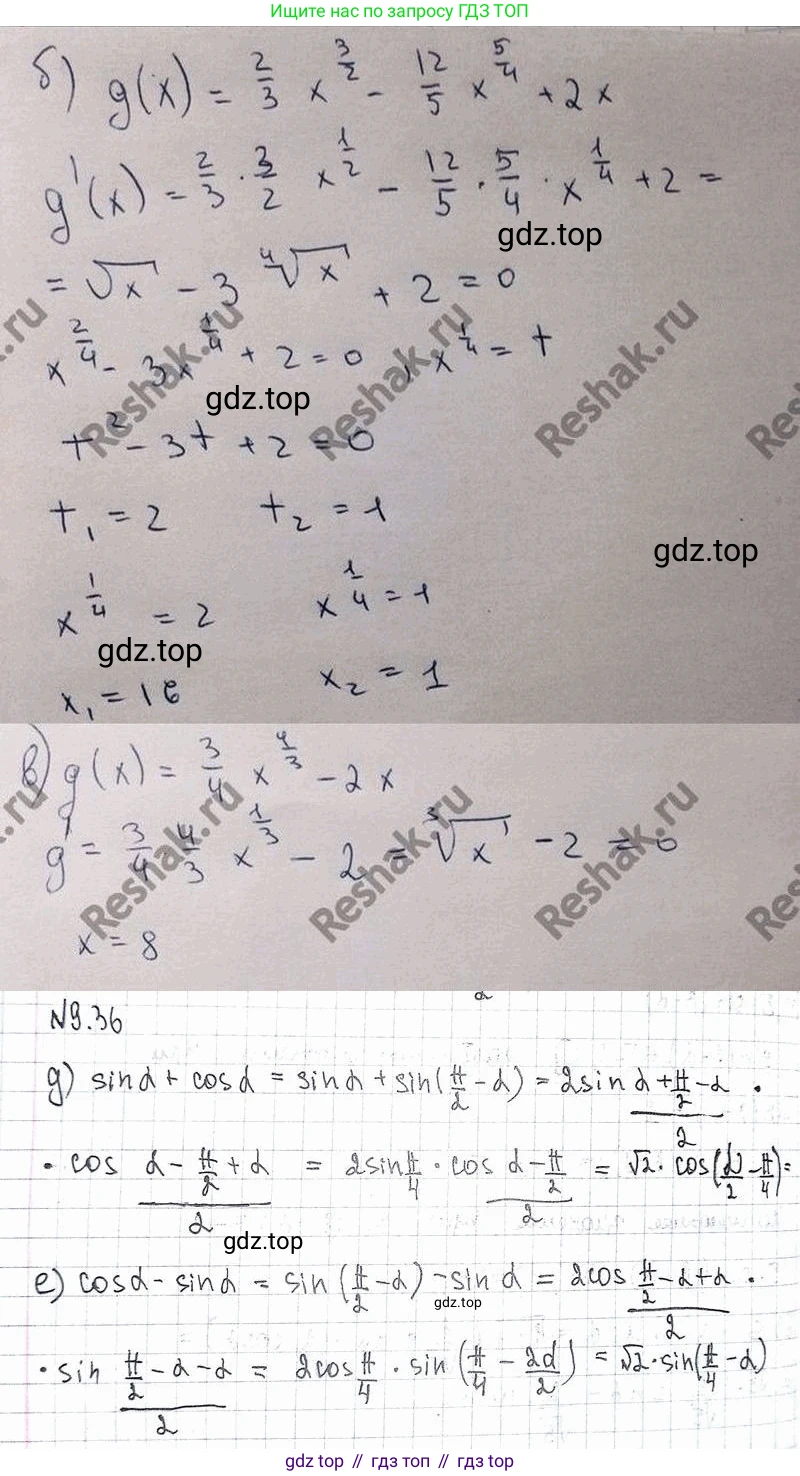 Ищите нас по запросу ГДЗ ТОП
б) g(x) = 2/3 x^(3/2) - 12/5 x^(5/4) + 2x
g'(x) = 2/3 · 3/2 x^(1/2) - 12/5 · 5/4 · x^(1/4) + 2 =
gdz.top
= √x - 3 ⁴√x + 2 = 0
x^(2/4) - 3x^(1/4) + 2 = 0, x^(1/4) = t
Reshak.ru Reshak.ru Reshak.ru Reshak.ru
gdz.top
t² - 3t + 2 = 0
t₁ = 2 t₂ = 1
gdz.top
x^(1/4) = 2 x^(1/4) = 1
gdz.top
x₁ = 16 x₂ = 1
в) g(x) = 3/4 x^(4/3) - 2x
g' = 3/4 4/3 x^(1/3) - 2 = ³√x - 2 = 0
Reshak.ru Reshak.ru Reshak.ru Reshak.ru
x = 8
N9.36
д) sinα + cosα = sinα + sin(π/2 - α) = 2sin (α + π/2 - α)/2 ·
· cos (α - π/2 + α)/2 = 2sin π/4 · cos (α - π/2)/2 = √2 · cos(α/2 - π/4) =
gdz.top
е) cosα - sinα = sin(π/2 - α) - sinα = 2cos (π/2 - α + α)/2 ·
gdz.top
· sin (π/2 - α - α)/2 = 2cos π/4 · sin(π/4 - 2α/2) = √2 · sin(π/4 - α)
gdz.top // гдз топ // гдз.топ